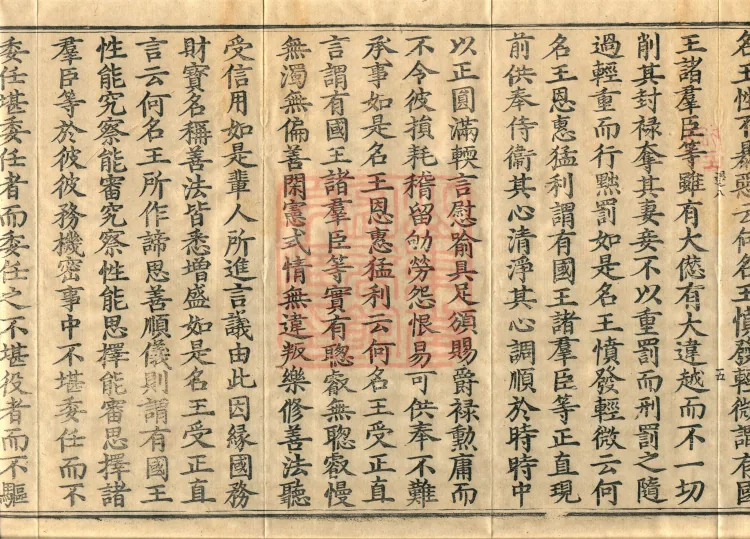 名王性不暴惡云何名王憤發輕微謂有國
王諸羣臣等雖有大愆有大違越而不一切
五
削其封禄奪其妻妾不以重罰而刑罰之隨
過輕重而行黜罰如是名王憤發輕微云何
名王恩惠猛利謂有國王諸羣臣等正直現
前供奉侍衞其心清淨其心調順於時時中
以正圓滿輭言慰喻具足頒賜爵禄勳庸而
不令彼損耗稽留劬勞怨恨易可供奉不難
承事如是名王恩惠猛利云何名王受正直
言謂有國王諸羣臣等實有聦叡無聦叡慢
無濁無偏善閑憲式情無違叛樂修善法聽
受信用如是輩人所進言議由此因緣國務
財寶名稱善法皆悉增盛如是名王受正直
言云何名王所作諦思善順儀則謂有國王
性能究察能審究察性能思擇能審思擇諸
羣臣等於彼彼務機密事中不堪委任而不
委任堪委任者而委任之不堪役者而不驅